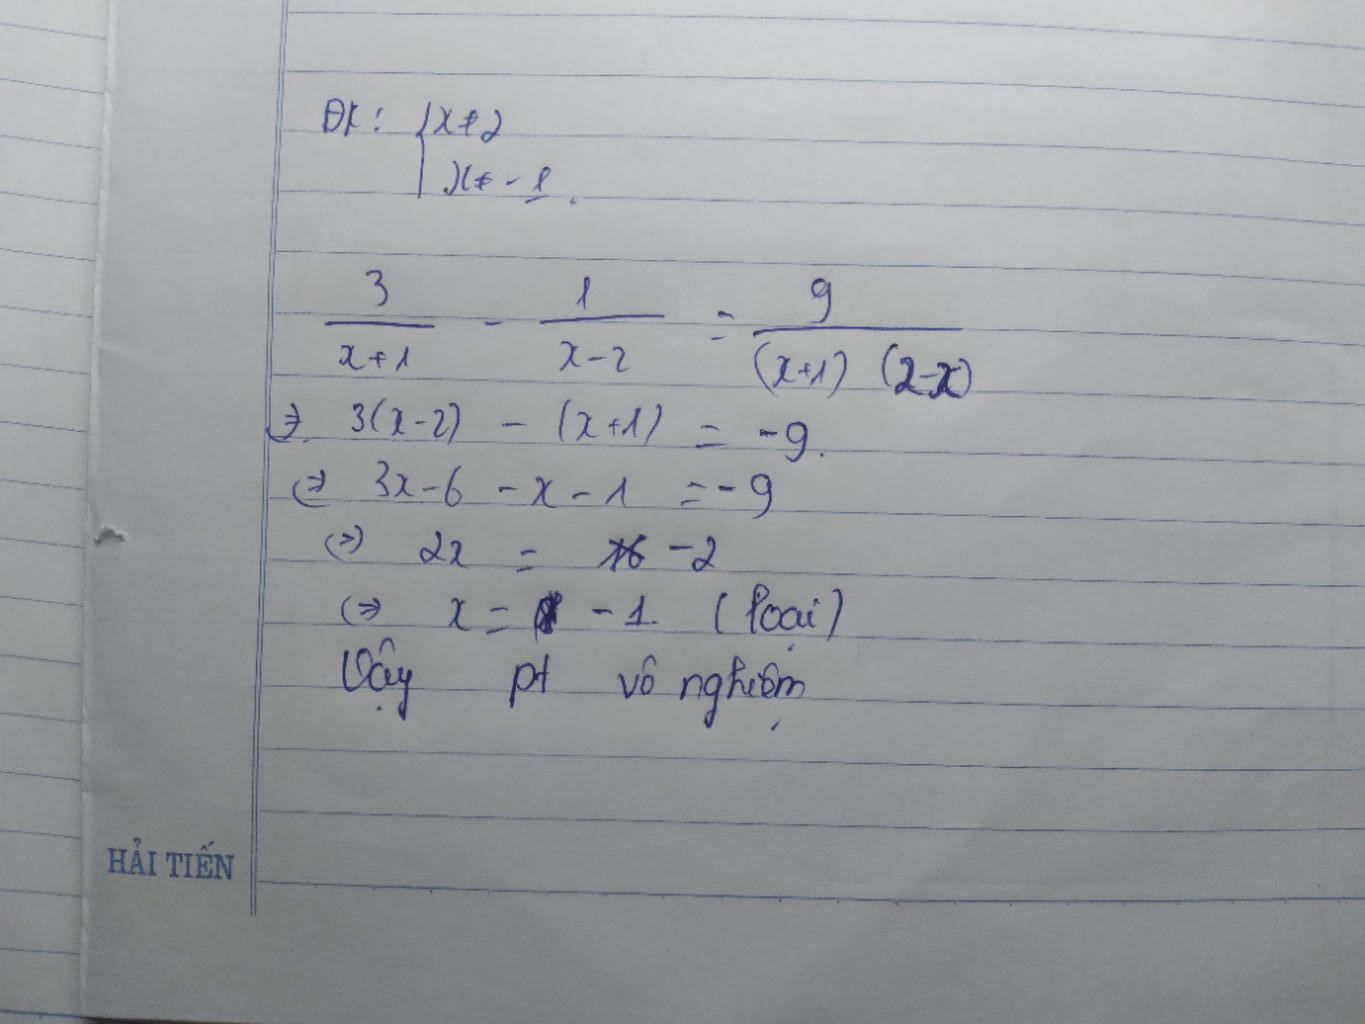 ĐK: { x ≠ 2
x ≠ -1.
3/(x+1) - 1/(x-2) = 9/((x+1) (2-x))
=> 3(x-2) - (x+1) = -9.
(=) 3x-6 -x-1 = -9
(=) 2x = -2
(=) x = -1. (loại)
Vậy pt vô nghiệm
HẢI TIẾN